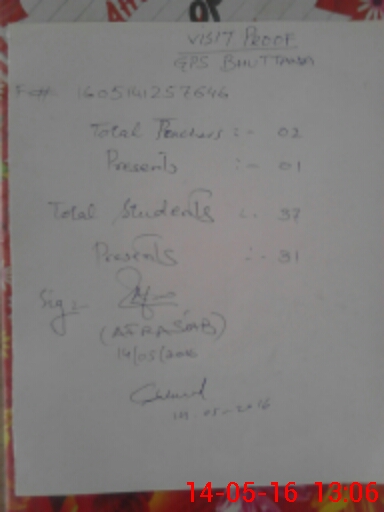 VISIT PROOF
GPS BHUTTANA
F## 1605141257646
Total Teachers :- 02
Presents :- 01
Total Students :. 37
Presents :- 31
Sig:-
(AFRASIAB)
14/05/2016
14-05-2016
14-05-16 13:06